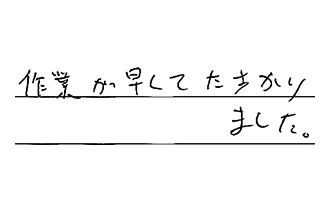 作業が早くてたすかり
ました。